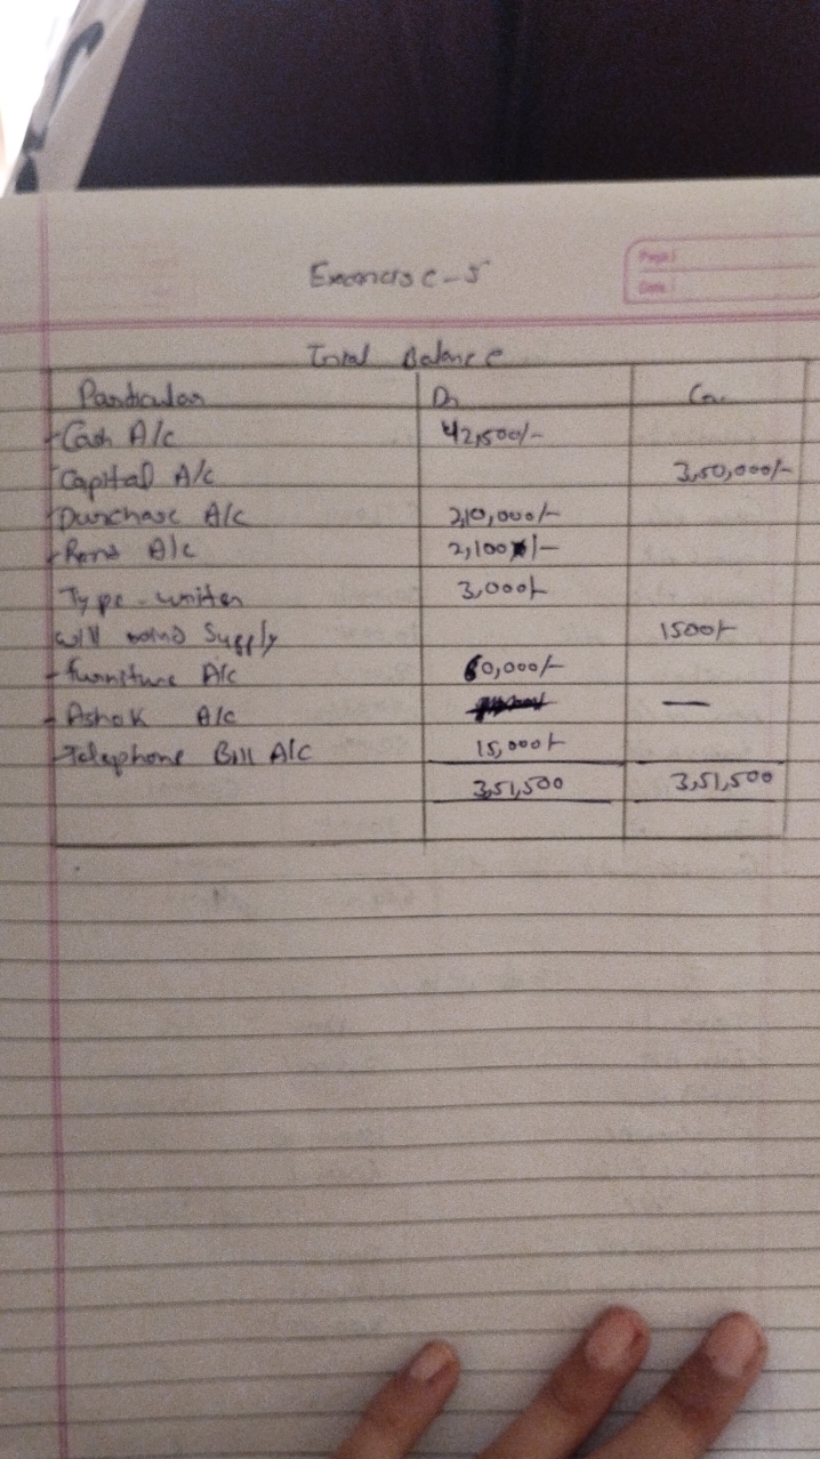 Exercise-5
Page:
Date:
Trial Balance
Particular Dr Cr
Cash A/c 42,500/-
Capital A/c 3,50,000/-
Purchase A/c 2,10,000/-
Rent A/c 2,100/-
Type-writer 3,000/-
Supply 1500/-
furniture A/c 60,000/-
Ashok A/c —
Telephone Bill A/c 15,000/-
3,51,500 3,51,500